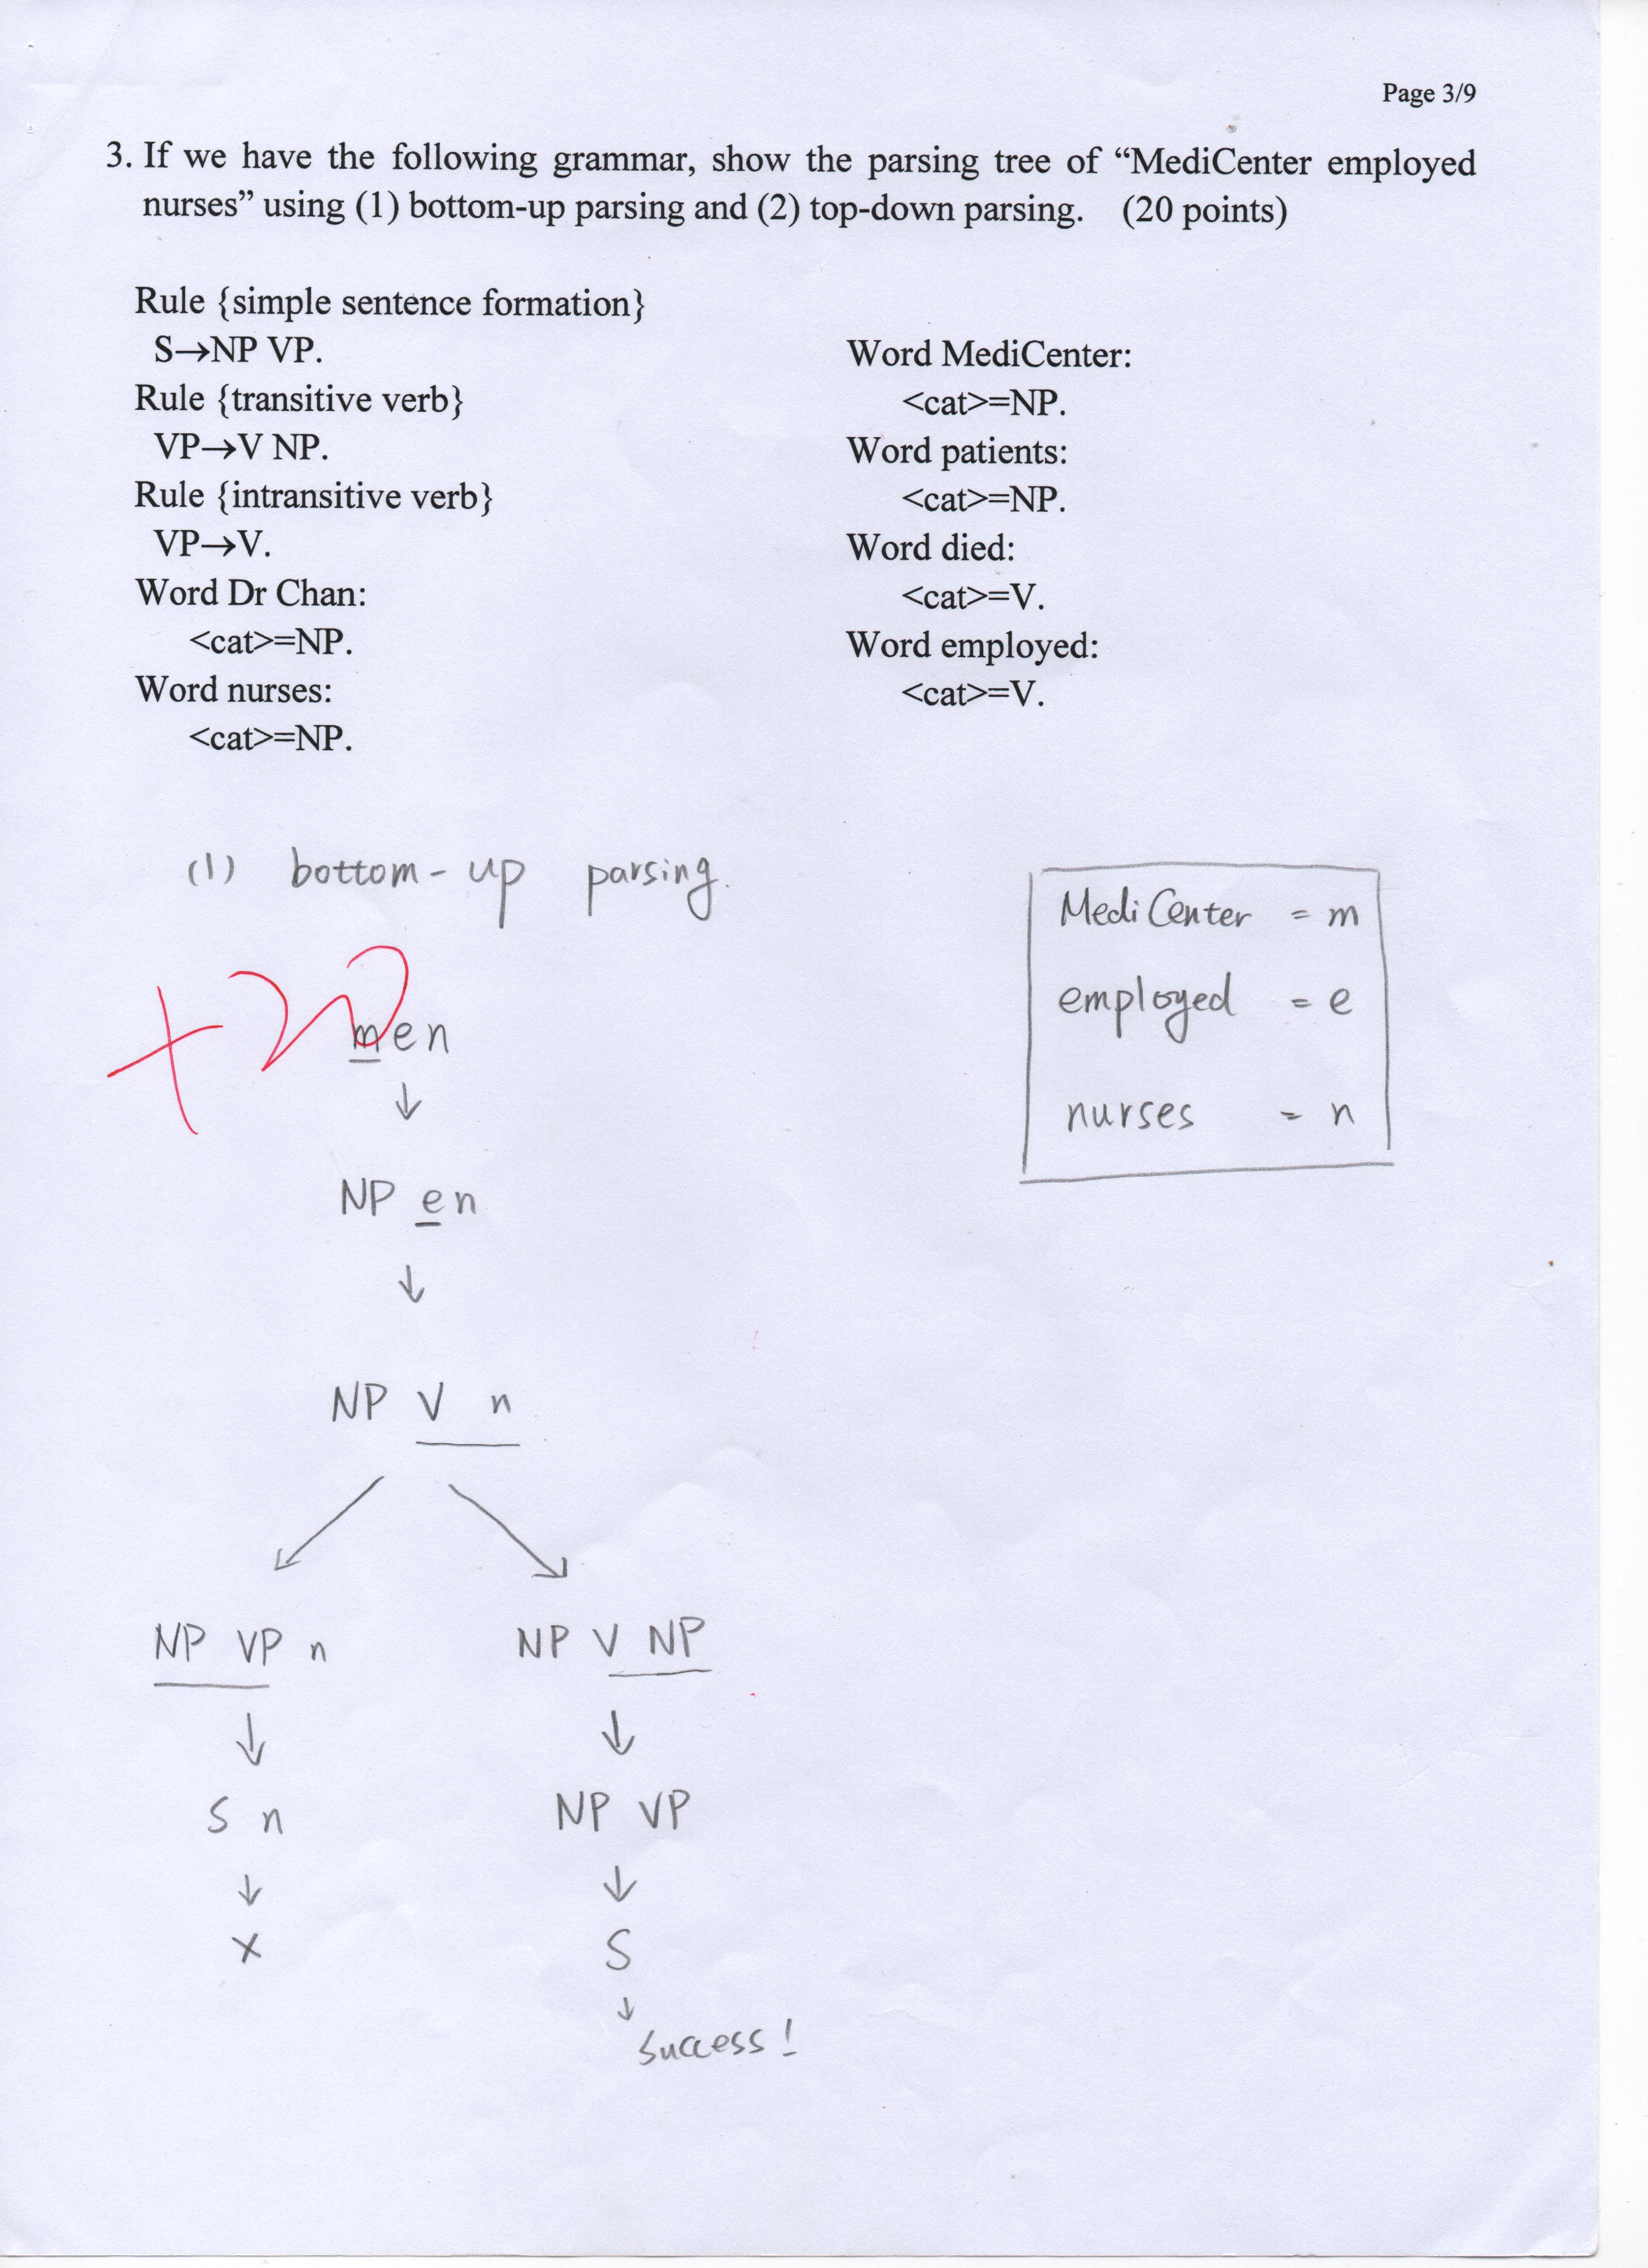 Page 3/9
3. If we have the following grammar, show the parsing tree of “MediCenter employed
nurses” using (1) bottom-up parsing and (2) top-down parsing. (20 points)
Rule {simple sentence formation}
S→NP VP.
Rule {transitive verb}
VP→V NP.
Rule {intransitive verb}
VP→V.
Word Dr Chan:
<cat>=NP.
Word nurses:
<cat>=NP.
Word MediCenter:
<cat>=NP.
Word patients:
<cat>=NP.
Word died:
<cat>=V.
Word employed:
<cat>=V.
(1) bottom-up parsing.
MediCenter = m
employed = e
nurses = n
+20
men
↓
NP en
↓
NP V n
NP VP n
NP V NP
↓ ↓
S n
NP VP
↓ ↓
X
S
↓
Success!